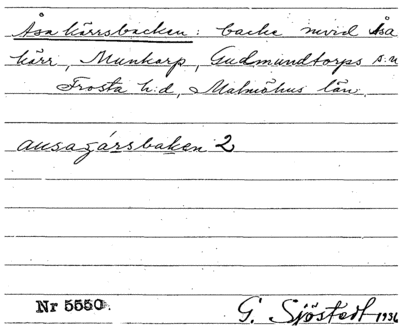 Åsa kärrsbacken: backe invid Åsa
kärr, Munkarp, Gudmundtorps s:n
Frosta h:d, Malmöhus län.
ausagársbaken 2
Nr 5550. G. Sjöstedt 1936